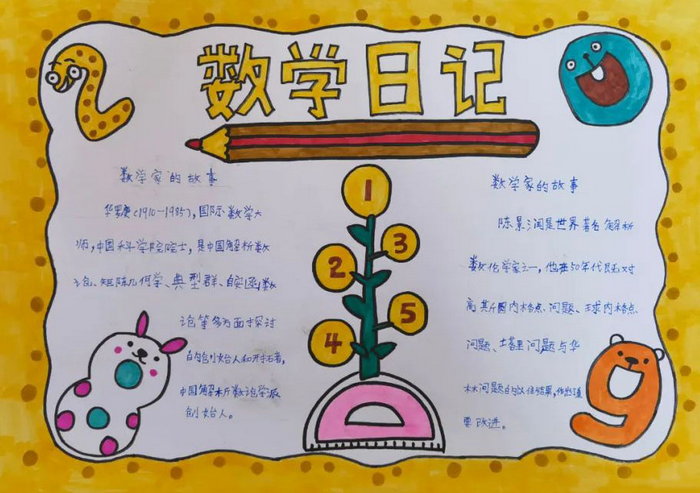 数学日记
数学家的故事
华罗庚(1910—1985),国际数学大
师,中国科学院院士,是中国解析数
论、矩阵几何学、典型群、自
论等多方面
的创始人和开拓者,
中国解析数论学派
创始人。
1
3
2
5
4
数学家的故事
陈景润是世界著名解析
数伦学家之一,他在50年代
高斯圆内格点问题、球内格点
问题、塔里问题与华
林问题的以往结果,作出
要改进。